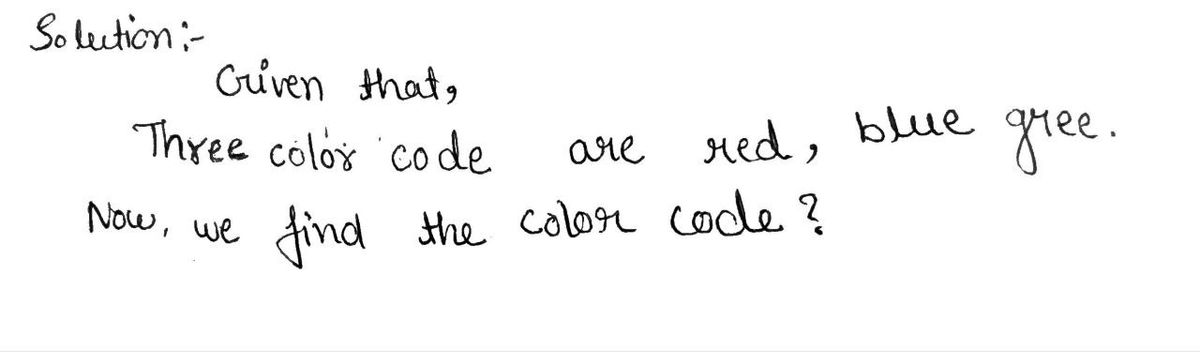 Solution :-
Given that,
Three color code are red, blue gree.
Now, we find the color code ?